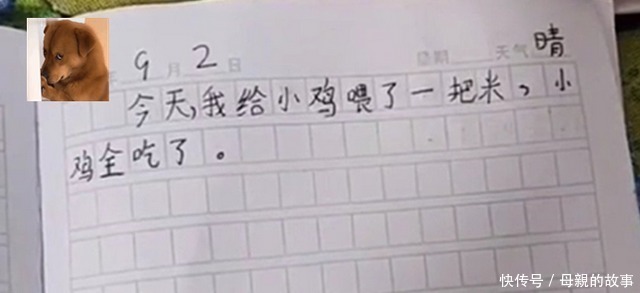 9月2日 星期 天气晴
今天,我给小鸡喂了一把米,小
鸡全吃了。
快传号/母親的故事